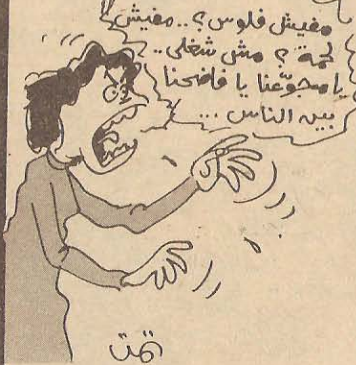 مفيش فلوس؟.. مفيش
لحمة؟ مش شغلى..
يا مجوّعنا يا فاضحنا
بين الناس...
تمت